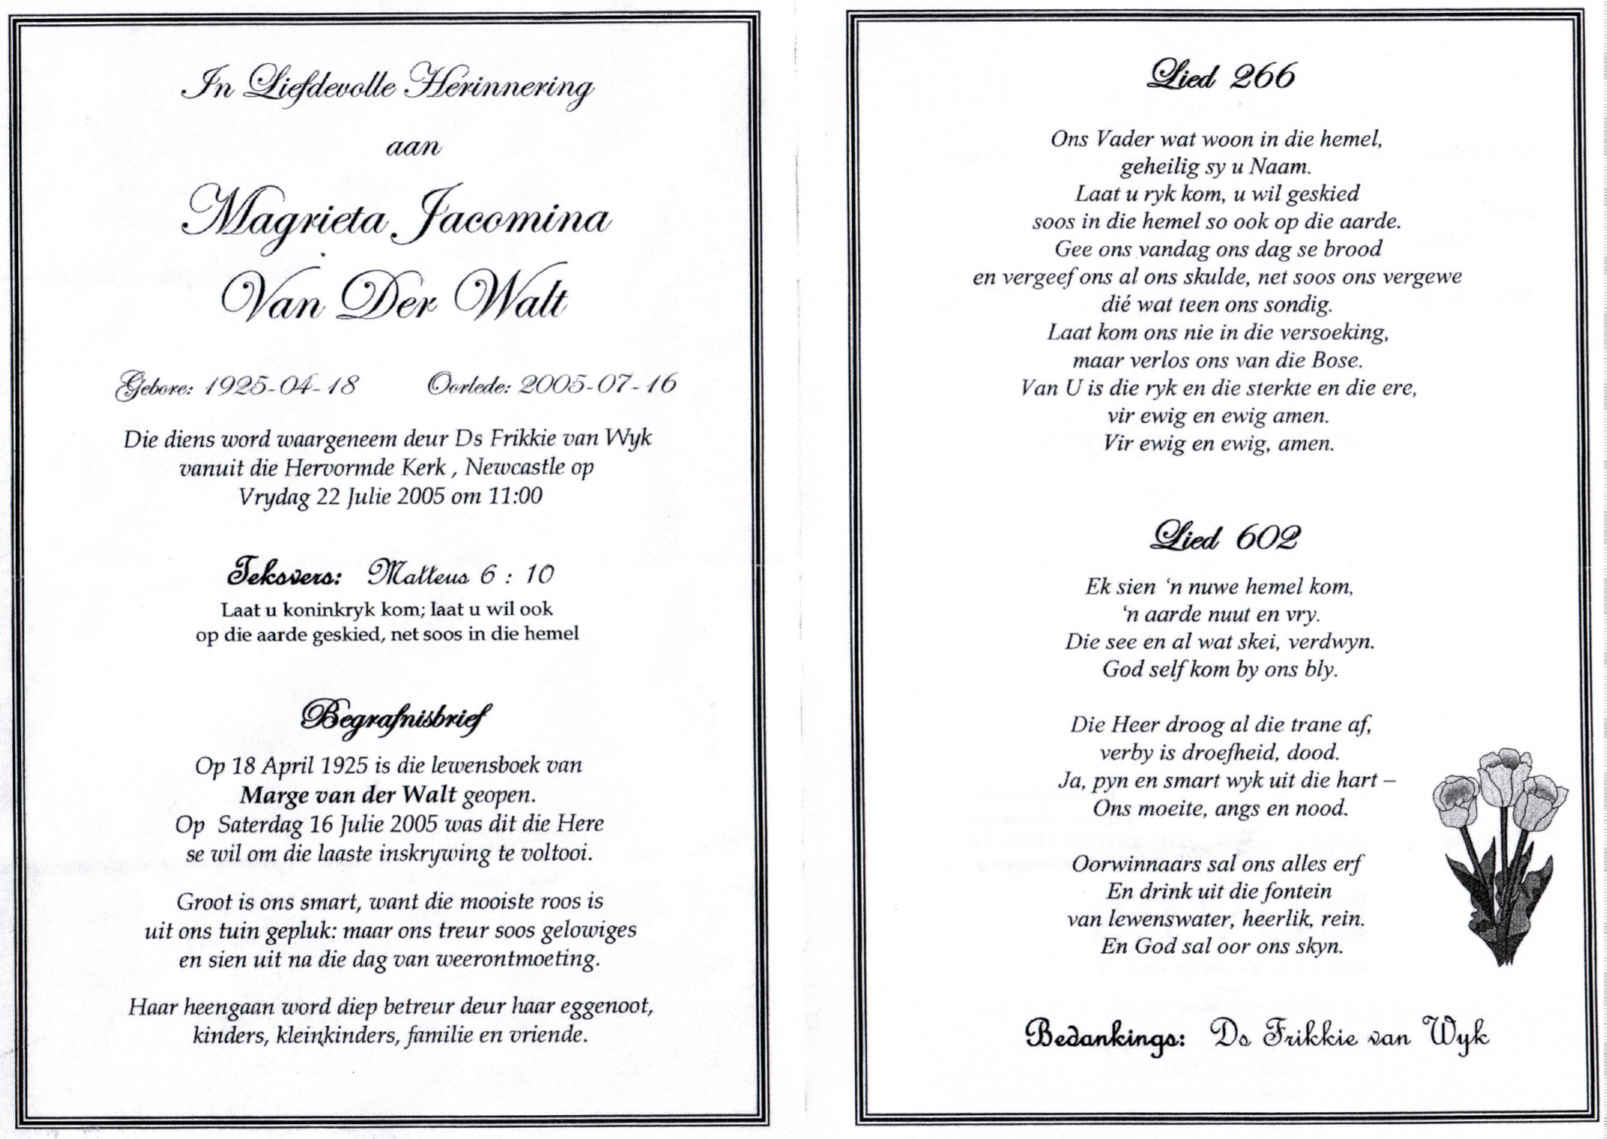 In Liefdevolle Herinnering
aan
Magrieta Jacomina
Van Der Walt
Gebore: 1925-04-18 Oorlede: 2005-07-16
Die diens word waargeneem deur Ds Frikkie van Wyk
vanuit die Hervormde Kerk , Newcastle op
Vrydag 22 Julie 2005 om 11:00
Teksvers: Matteus 6 : 10
Laat u koninkryk kom; laat u wil ook
op die aarde geskied, net soos in die hemel
Begrafnisbrief
Op 18 April 1925 is die lewensboek van
Marge van der Walt geopen.
Op Saterdag 16 Julie 2005 was dit die Here
se wil om die laaste inskrywing te voltooi.
Groot is ons smart, want die mooiste roos is
uit ons tuin gepluk: maar ons treur soos gelowiges
en sien uit na die dag van weerontmoeting.
Haar heengaan word diep betreur deur haar eggenoot,
kinders, kleinkinders, familie en vriende.
Lied 266
Ons Vader wat woon in die hemel,
geheilig sy u Naam.
Laat u ryk kom, u wil geskied
soos in die hemel so ook op die aarde.
Gee ons vandag ons dag se brood
en vergeef ons al ons skulde, net soos ons vergewe
dié wat teen ons sondig.
Laat kom ons nie in die versoeking,
maar verlos ons van die Bose.
Van U is die ryk en die sterkte en die ere,
vir ewig en ewig amen.
Vir ewig en ewig, amen.
Lied 602
Ek sien 'n nuwe hemel kom,
'n aarde nuut en vry.
Die see en al wat skei, verdwyn.
God self kom by ons bly.
Die Heer droog al die trane af,
verby is droefheid, dood.
Ja, pyn en smart wyk uit die hart –
Ons moeite, angs en nood.
Oorwinnaars sal ons alles erf
En drink uit die fontein
van lewenswater, heerlik, rein.
En God sal oor ons skyn.
Bedankings: Ds Frikkie van Wyk